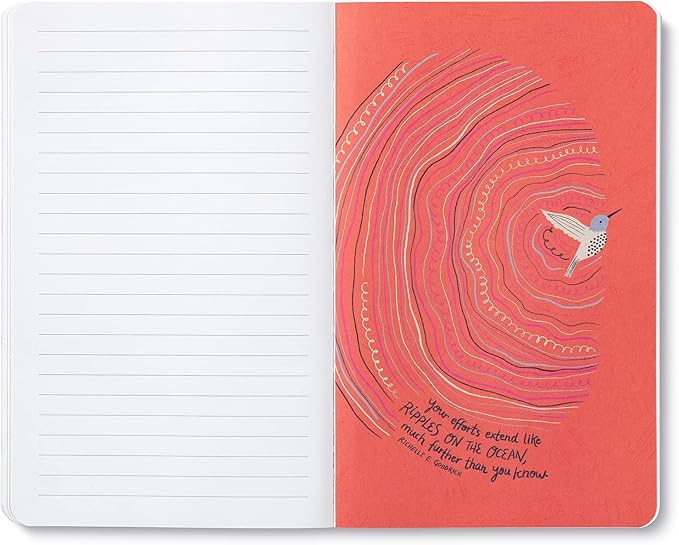 your efforts extend like
RIPPLES ON THE OCEAN,
much further than you know.
RICHELLE E. GOODRICH